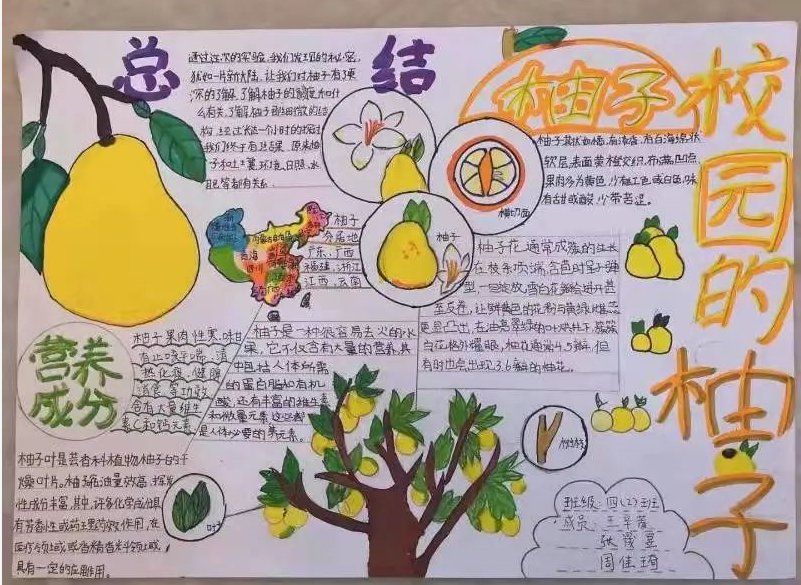 总结
柚子
校园的柚子
通过这次的实验,我们发现的秘密,
犹如一片新大陆,让我们对柚子有了更
深的了解,了解柚子的
么有关,了解柚子
构,经过
我们终于有些结果,原来柚
子和土壤,环境,日照,水
肥等都有关系。
柚切面
柚子
柚子
分居地
广东、广西
福建、浙江
江西、云南
软层,表面黄橙交织,布满凹点,
果肉多为黄色,少有红色或白色,味
有甜或酸,少带苦涩。
柚子花,通常成簇的生长
在枝条顶端,含苞时呈子弹
型,一旦绽放,雪白花瓣会绽开甚
至反卷,让鲜黄色的花粉与黄绿雌蕊
更显凸出,在油亮翠绿的叶状衬下,簇簇
白花格外耀眼,柚花通常4.5瓣,但
有时也会出现3.6瓣的柚花。
营养
成分
柚子果肉性寒,味甘
有止咳平喘、清
热化痰、健脾
消食等功效
含有大量维生
素C和钙元素
柚子是一种很容易去火的水
果,它不仅含有大量的营养,其
中包括人体所需
的蛋白脂和有机
酸,还有丰富的维生素
和微量元素,这些都
是人体必要的养元素。
柚子叶是芸香科植物柚子的干
燥叶片。柚
性成份丰富,其中,许多化学成份具
有芳香性或药理药效作用,在
医疗领域或者精香料领域
具有一定的应用。
叶子
树枝
班级:四(2)班
成员:
周佳琦